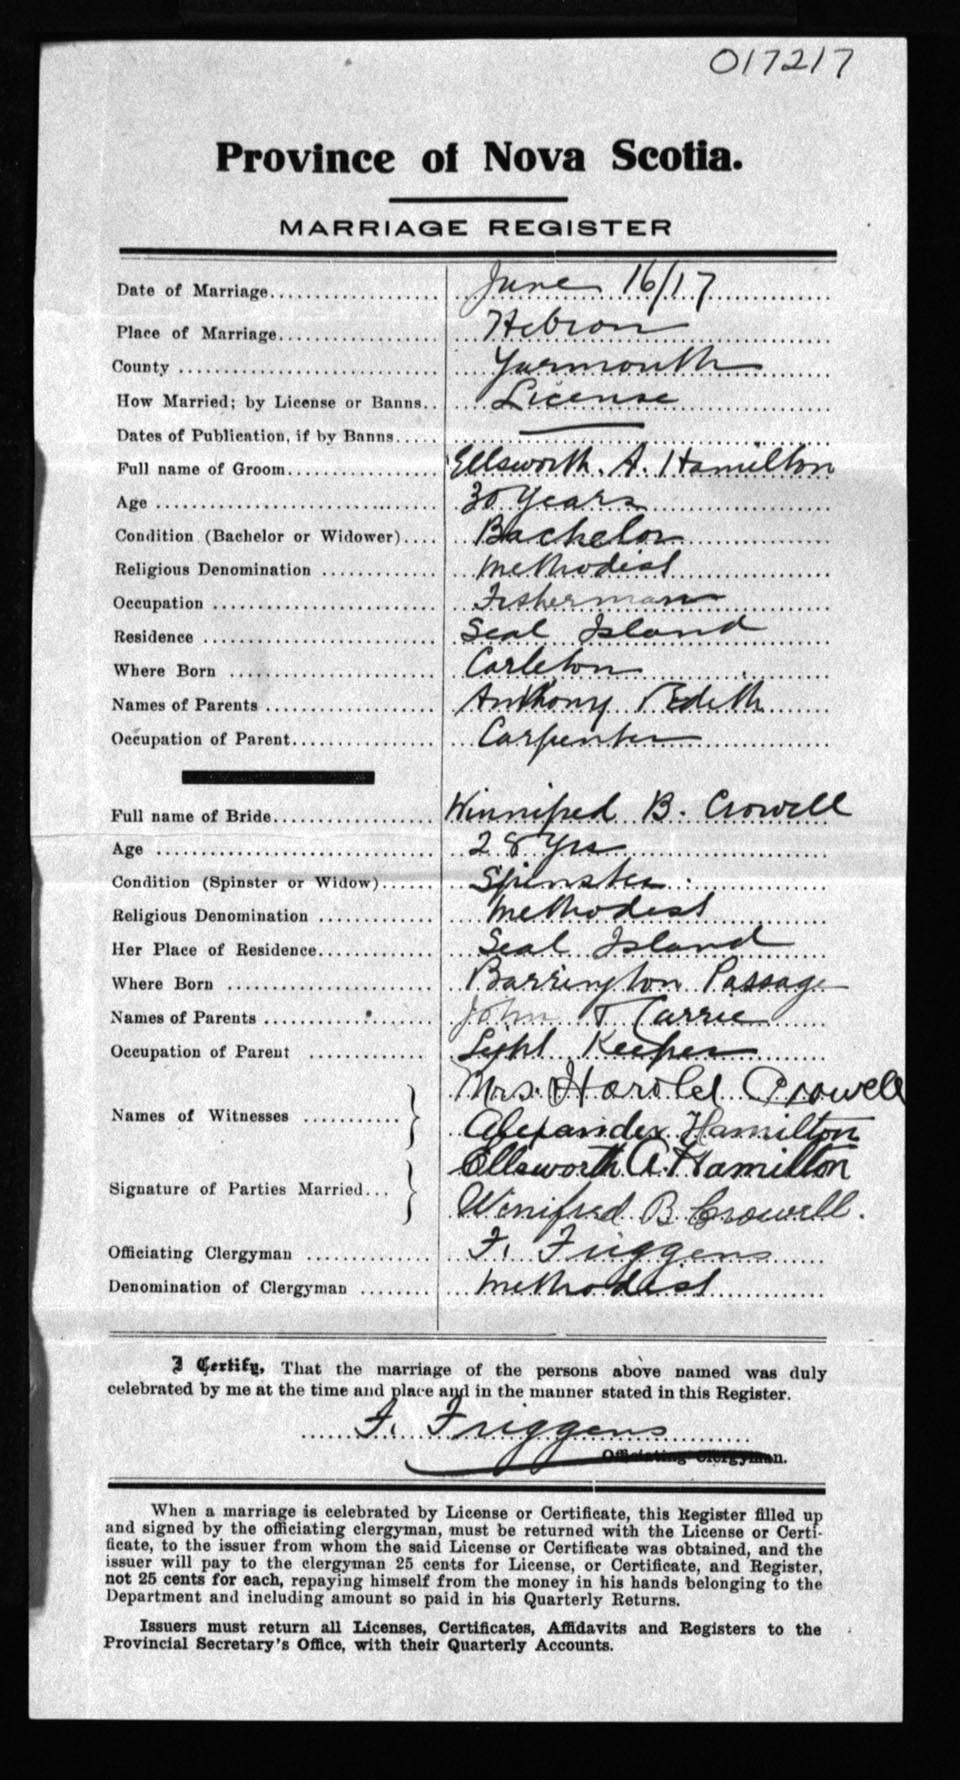 017217
Province of Nova Scotia.
MARRIAGE REGISTER
Date of Marriage.................... June 16/17
Place of Marriage................... Hebron
County ............................. Yarmouth
How Married; by License or Banns.. License
Dates of Publication, if by Banns..... ———
Full name of Groom.................. Ellsworth. A. Hamilton
Age ................................ 30 Years
Condition (Bachelor or Widower).... Bachelor
Religious Denomination ............. Methodist
Occupation ......................... Fisherman
Residence .......................... Seal Island
Where Born ......................... Carleton
Names of Parents ................... Anthony Edith
Occupation of Parent................ Carpenter
Full name of Bride.................. Winnifred B. Crowell
Age ................................ 28 Yrs
Condition (Spinster or Widow)...... Spinster
Religious Denomination ............. Methodist
Her Place of Residence............. Seal Island
Where Born ......................... Barrington Passage
Names of Parents ................... John & Carrie
Occupation of Parent ............... Light Keeper
Names of Witnesses ........... } Mrs. Harold Crowell
Alexander Hamilton
Signature of Parties Married... } Ellsworth A. Hamilton
Winifred B Crowell.
Officiating Clergyman .............. F. Friggens
Denomination of Clergyman ........ Methodist
I Certify, That the marriage of the persons above named was duly
celebrated by me at the time and place and in the manner stated in this Register.
F. Friggens
Officiating Clergyman.
When a marriage is celebrated by License or Certificate, this Register filled up
and signed by the officiating clergyman, must be returned with the License or Certi-
ficate, to the issuer from whom the said License or Certificate was obtained, and the
issuer will pay to the clergyman 25 cents for License, or Certificate, and Register,
not 25 cents for each, repaying himself from the money in his hands belonging to the
Department and including amount so paid in his Quarterly Returns.
Issuers must return all Licenses, Certificates, Affidavits and Registers to the
Provincial Secretary's Office, with their Quarterly Accounts.